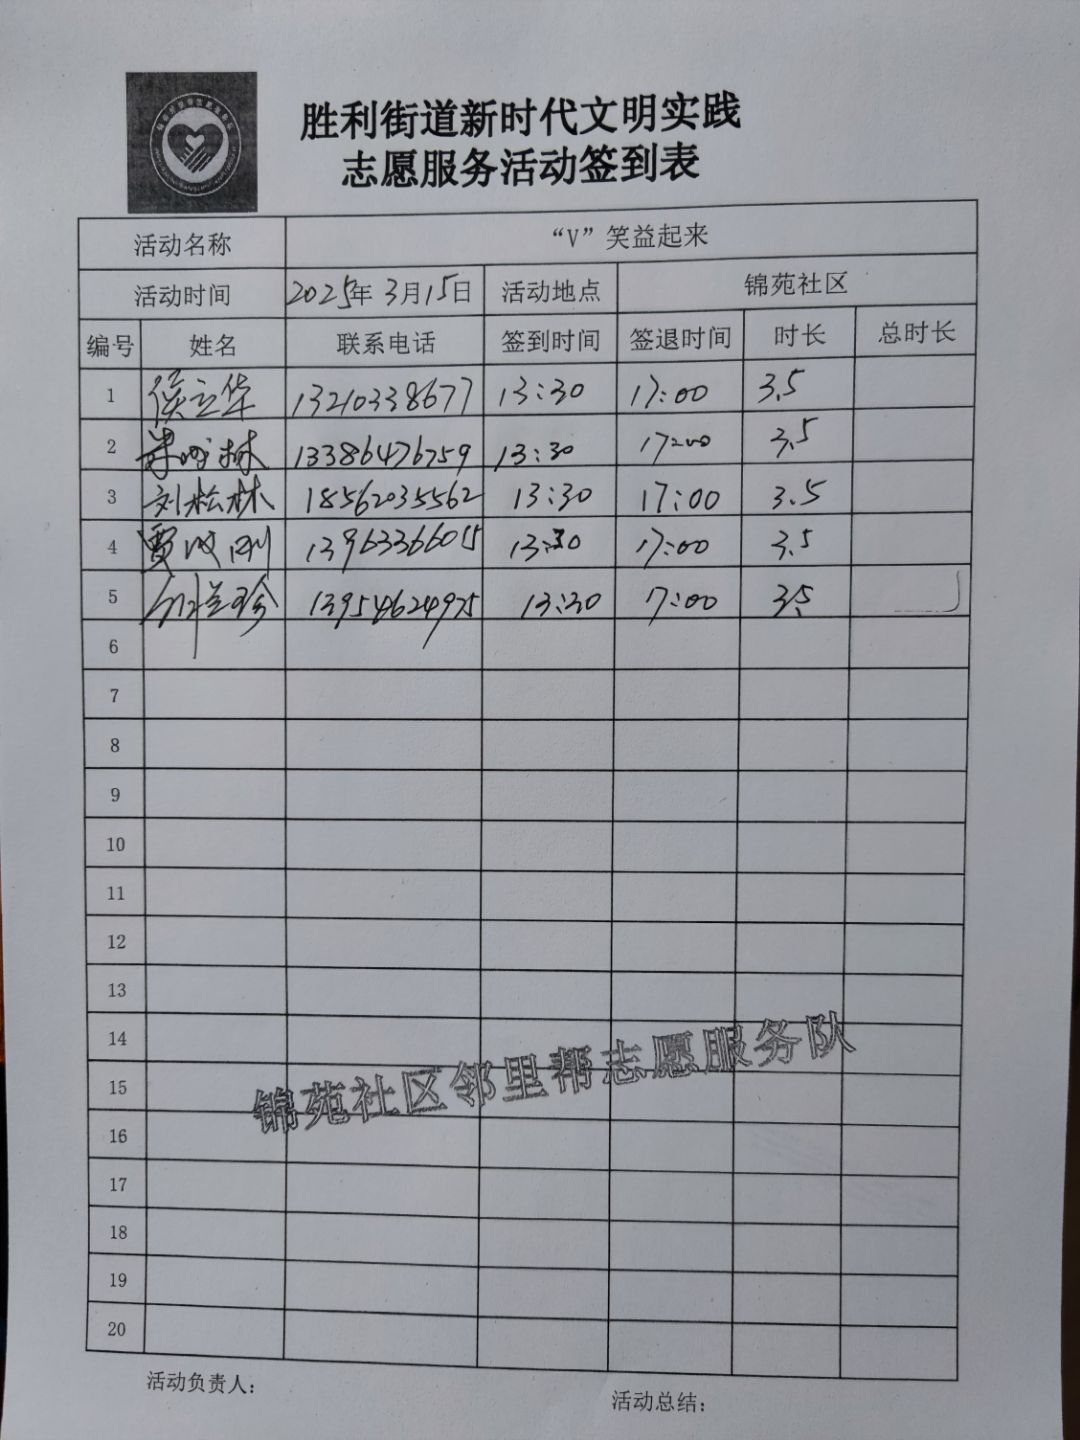 胜利街道新时代文明实践
志愿服务活动签到表
活动名称 “V”笑益起来
活动时间 2025年 3月15日 活动地点 锦苑社区
编号 姓名 联系电话 签到时间 签退时间 时长 总时长
1 侯立华 13210338677 13:30 17:00 3.5
2 林 13386476759 13:30 17:00 3.5
3 刘松林 18562035562 13:30 17:00 3.5
4 贾波刚 13963366015 13:30 17:00 3.5
5 13954624975 13:30 17:00 3.5
6
7
8
9
10
11
12
13
14
15
16
17
18
19
20
锦苑社区邻里帮志愿服务队
活动负责人:
活动总结: